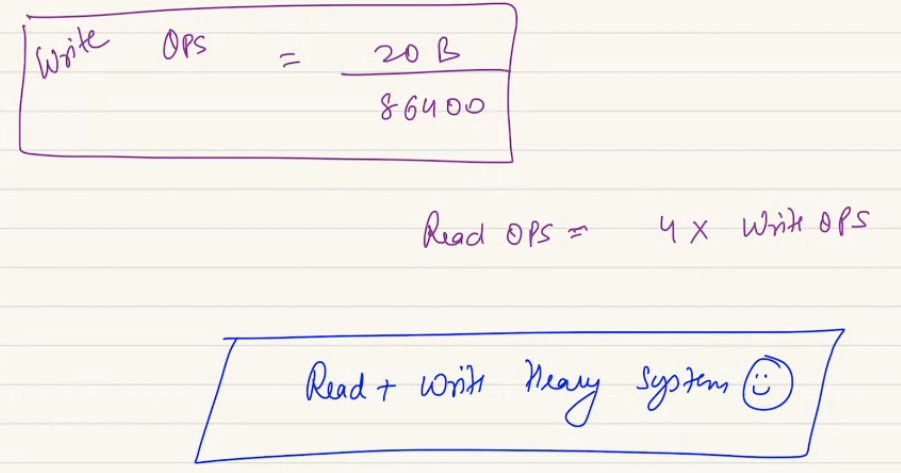 Write OPS = 20 B
86400
Read OPS = 4 X Write OPS
Read + Write Heavy System